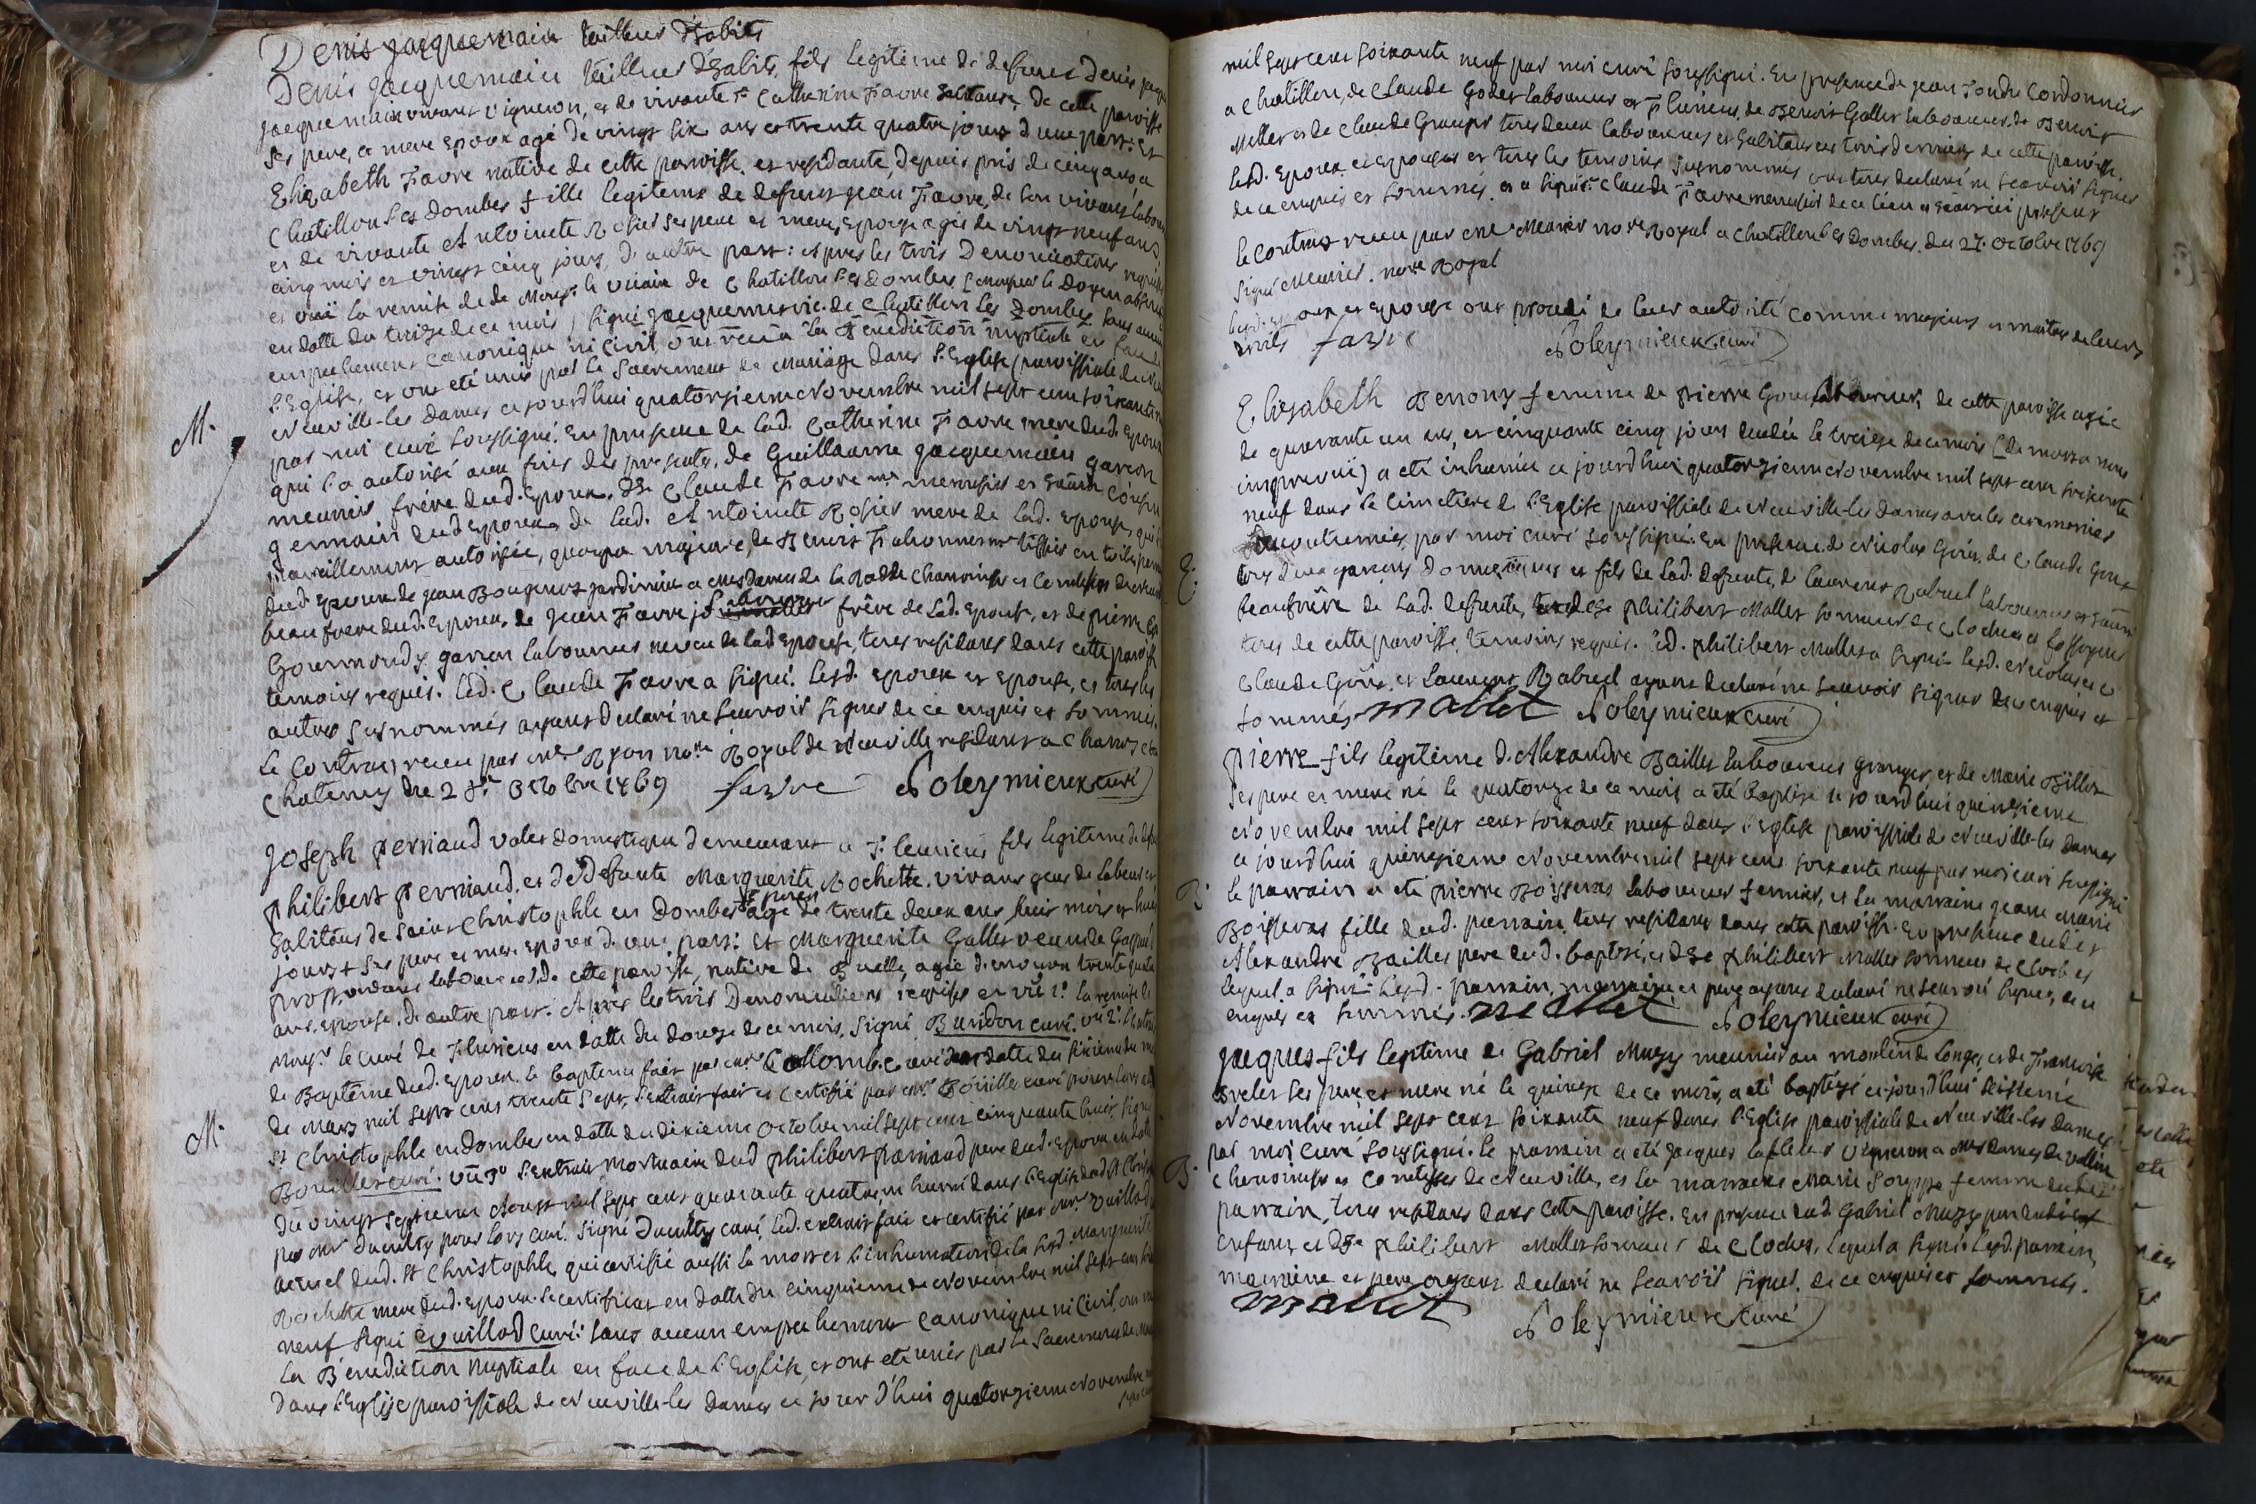 Denis Jacquemain tailleur d'habits
Denis Jacquemain tailleur d'habits, fils legitime de defunt Denis
Jacquemain vivant vigneron, et de vivante Catherine Favre de cette paroisse
ses pere et mere epoux agé de vingt six ans et trente quatre jours d'une part: Et
Elizabeth Favre native de cette paroisse et residante, depuis près de cinq ans a
Chatillon les Dombes fille legitime de defunt Jean Favre, de son vivant labou
et de vivante Antoinete Rosier ses pere et mere, Epouse agée de vingt neuf ans
cinq mois et vingt cinq jours, d'autre part: apres les trois Denonciations requises
et vuë la remise de de Monsr. le vicaire de Chatillon les Dombes (Monsieur le Doyen absent)
en datte du treize de ce mois, signé Jacquemet vic. de Chatillon les Dombes, sans aucun
empechement Canonique ni Civil, ont reçu la Benediction nuptiale en face de
l'Eglise, et ont eté unis par le Sacrement de Mariage dans l'Eglise paroissiale de
Neuville-les Dames ce jourd'hui quatorzieme Novembre mil sept cent soixante
par moi curé soussigné. En presence de lad. Catherine Favre mere dud. Epoux
qui l'a autorisé aux fins des presentes, de Guillaume Jacquemain garcon
meunier frère dud. Epoux, de Claude Favre me menuisier et cousin
germain dud Epoux, de lad. Antoinete Rosier mere de lad. Epouse, qui l'a
pareillement autorisée, quoyque majeure, de Benoit tissier en toile,
dud. Epoux de Jean jardinier a Mesdames de la Chanoinesses et Comtesses de
beaufrere dud. Epoux, de Jean Favre frère de lad. Epouse, et de pierre
Gourmond garcon laboureur neveu de lad Epouse, tous residans dans cette paroisse
temoins requis. Led. Claude Favre a signé. Lesd. Epoux et Epouse, et tous les
autres susnommés ayant declaré ne scavoir signer de ce enquis et sommés.
Le Contrat recu par me. Ryon nore. Royal de Neuville residant a
Chateney du 28e. 8bre 1769 favre Soleymieux curé
M.
Joseph perriaud valet domestique demeurant a St. fils legitime de
philibert perriaud, et de defunte Marguerite Rochette, vivans gens de labeur et
habitans de Saint Christophle en Dombes Epoux agé de trente deux ans huit mois et huit
jours ses pere et mere, d'une part: Et Marguerite Gallet veuve de
laboureur, de cette paroisse, native de agée d'environ trente quatre
ans, epouse, de autre part. Après les trois Denonciations requises et vu 1º. la remise de
Monsr. le curé de en datte du douze de ce mois, signé Burdon curé. vu 2º. l'extrait
de Baptême dud. Epoux. le baptême fait par me. Collomb curé en datte du
de Mars mil sept cens trente sept, l'extrait fait et certifié par mr. Bouillet curé pour lors
St Christophle en Dombes en datte du dixieme Octobre mil sept cent cinquante huit, signé
Bouillet curé. vu 3º l'extrait mortuaire dud philibert parriaud pere dud. Epoux en date
du vingt septieme Aoust mil sept cent quarante quatre, inhumé dans l'Eglise dud St Christ
par mr Dacultty pour lors curé. signé Dacultty curé, led. extrait fait et certifié par mr. vuillod
actuel dud. St Christophle, qui certifié aussi la mort et l'inhumation de la susd. Marguerite
Rochette mere dud. Epoux. le certificat en datte du cinquieme de Novembre mil sept cent
neuf signé vuillod curé: sans aucun empechement Canonique ni Civil, ont
la Benediction Nuptiale en face de l'Eglise, et ont eté unis par le Sacrement de
dans l'Eglise paroissiale de Neuville-les Dames ce jourd'hui quatorzieme Novembre
M.
mil sept cent soixante neuf par moi curé soussigné. En presence de Jean Cordonnier
a Chatillon, de Claude Godet laboureur a de Benoit Gallet laboureur, de Benoit
Mollet et de Claude tous deux laboureurs et habitans trois derniers de cette paroisse.
lesd. Epoux et Epouse et tous les temoins susnommés ont tous declaré ne scavoir signer
de ce enquis et sommés, et a signé Sr. Claude Favre menuisier de ce lieu present
le Contrat recu par me. Meunier nore Royal a Chatillon les Dombes, du 27. octobre 1769
signé Meunier. nore Royal
lesd. epoux et epouse ont procedé de leur autorité comme majeurs et maitres de leurs
droits favre Soleymieux curé
E. Elizabeth Benony femme de pierre laboureur, de cette paroisse agée
de quarante un ans, et cinquante cinq jours decedée le treize de ce mois (de mort a nous
imprevuë) a eté inhumée ce jourd'hui quatorzieme Novembre mil sept cent soixante
neuf dans le Cimetiere de l'Eglise paroissiale de Neuville-les Dames avec les ceremonies
accoutumées, par moi curé soussigné. En presence de Nicolas de Claude
tous deux garcons domestiques et fils de lad. Defunte, de Laurent Rabuel laboureur
beaufrère de lad. defunte, de Sr philibert Mallet sonneur de Cloches et fossoyeur
tous de cette paroisse, temoins requis. Led. philibert Mallet a signé. Lesd. Nicolas et
Claude et Laurent Rabuel ayans declaré ne scavoir signer de ce enquis et
sommés mallet Soleymieux curé
B. pierre fils legitime d'Alexandre Baillet laboureur granger, et de Marie Billet
ses pere et mere né le quatorze de ce mois a eté baptisé ce jourd'hui quinzieme
Novembre mil sept cent soixante neuf dans l'Eglise paroissiale de Neuville-les Dames
ce jourd'hui quinzieme Novembre mil sept cent soixante neuf par moi curé soussigné
le parrain a eté pierre Boisseras laboureur fermier, et la marraine Jeane Marie
Boisseras fille dud. parrain, tous residans dans cette paroisse. En presence dudit
Alexandre Baillet pere dud. baptisé, et de Sr philibert Mallet sonneur de Cloches
lequel a signé. Lesd. parrain, marraine et pere ayans declaré ne scavoir signer, de ce
enquis et sommés. mallet Soleymieux curé
B. Jacques fils legitime de Gabriel Muzy meunier au moulin de Longe, et de Francoise
ses pere et mere né le quinze de ce mois, a eté baptizé ce jourd'hui seizieme
Novembre mil sept cent soixante neuf dans l'Eglise paroissiale de Neuville-les Dames,
par moi curé soussigné. Le parrain a eté Jacques vigneron a Mes dames de
Chanoinesses Comtesses de Neuville, et la marraine Marie femme dudit
parrain, tous residans dans cette paroisse. En presence dud Gabriel Muzy pere dudit
enfant, et de Sr philibert Mallet sonneur de Cloches, lequel a signé. Lesd. parrain,
marraine et pere ayans declaré ne scavoir signer. de ce enquis et sommés.
mallet Soleymieux curé